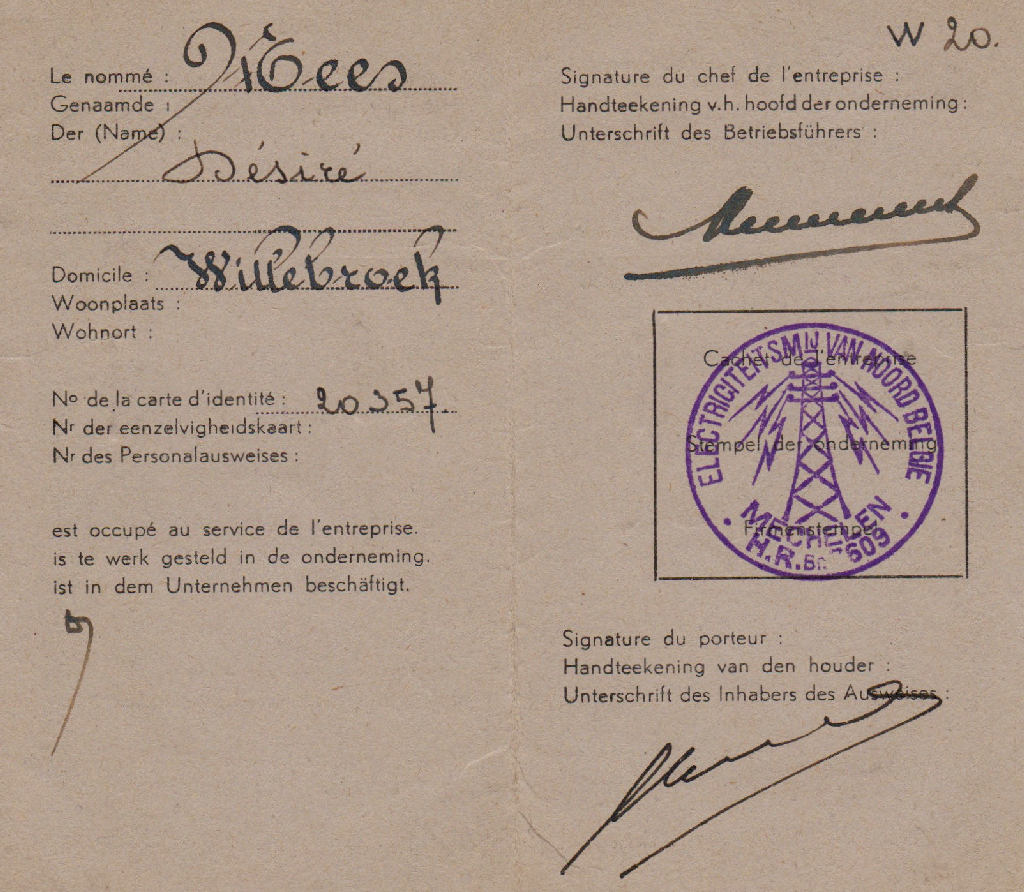 Le nommé : Mees
Genaamde :
Der (Name) :
Désiré
Domicile : Willebroek
Woonplaats :
Wohnort :
No de la carte d'identité : 20357.
Nr der eenzelvigheidskaart :
Nr des Personalausweises :
est occupé au service de l'entreprise.
is te werk gesteld in de onderneming.
ist in dem Unternehmen beschäftigt.
W 20.
Signature du chef de l'entreprise :
Handteekening v.h. hoofd der onderneming :
Unterschrift des Betriebsführers :
Cachet de l'entreprise
Stempel der onderneming
Firmenstempel
ELECTRICITEITSMIJ VAN NOORD BELGIE
MECHELEN
H.R. 609
Signature du porteur :
Handteekening van den houder :
Unterschrift des Inhabers des Ausweises :